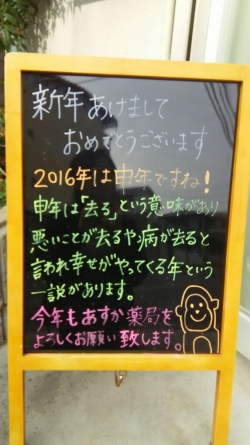 新年あけまして
おめでとうございます
2016年は申年ですね!
申年は「去る」という意味があり
悪いことが去るや、病が去ると
言われ幸せがやってくる年という
一説があります。
今年もあすか薬局を
よろしくお願い致します。